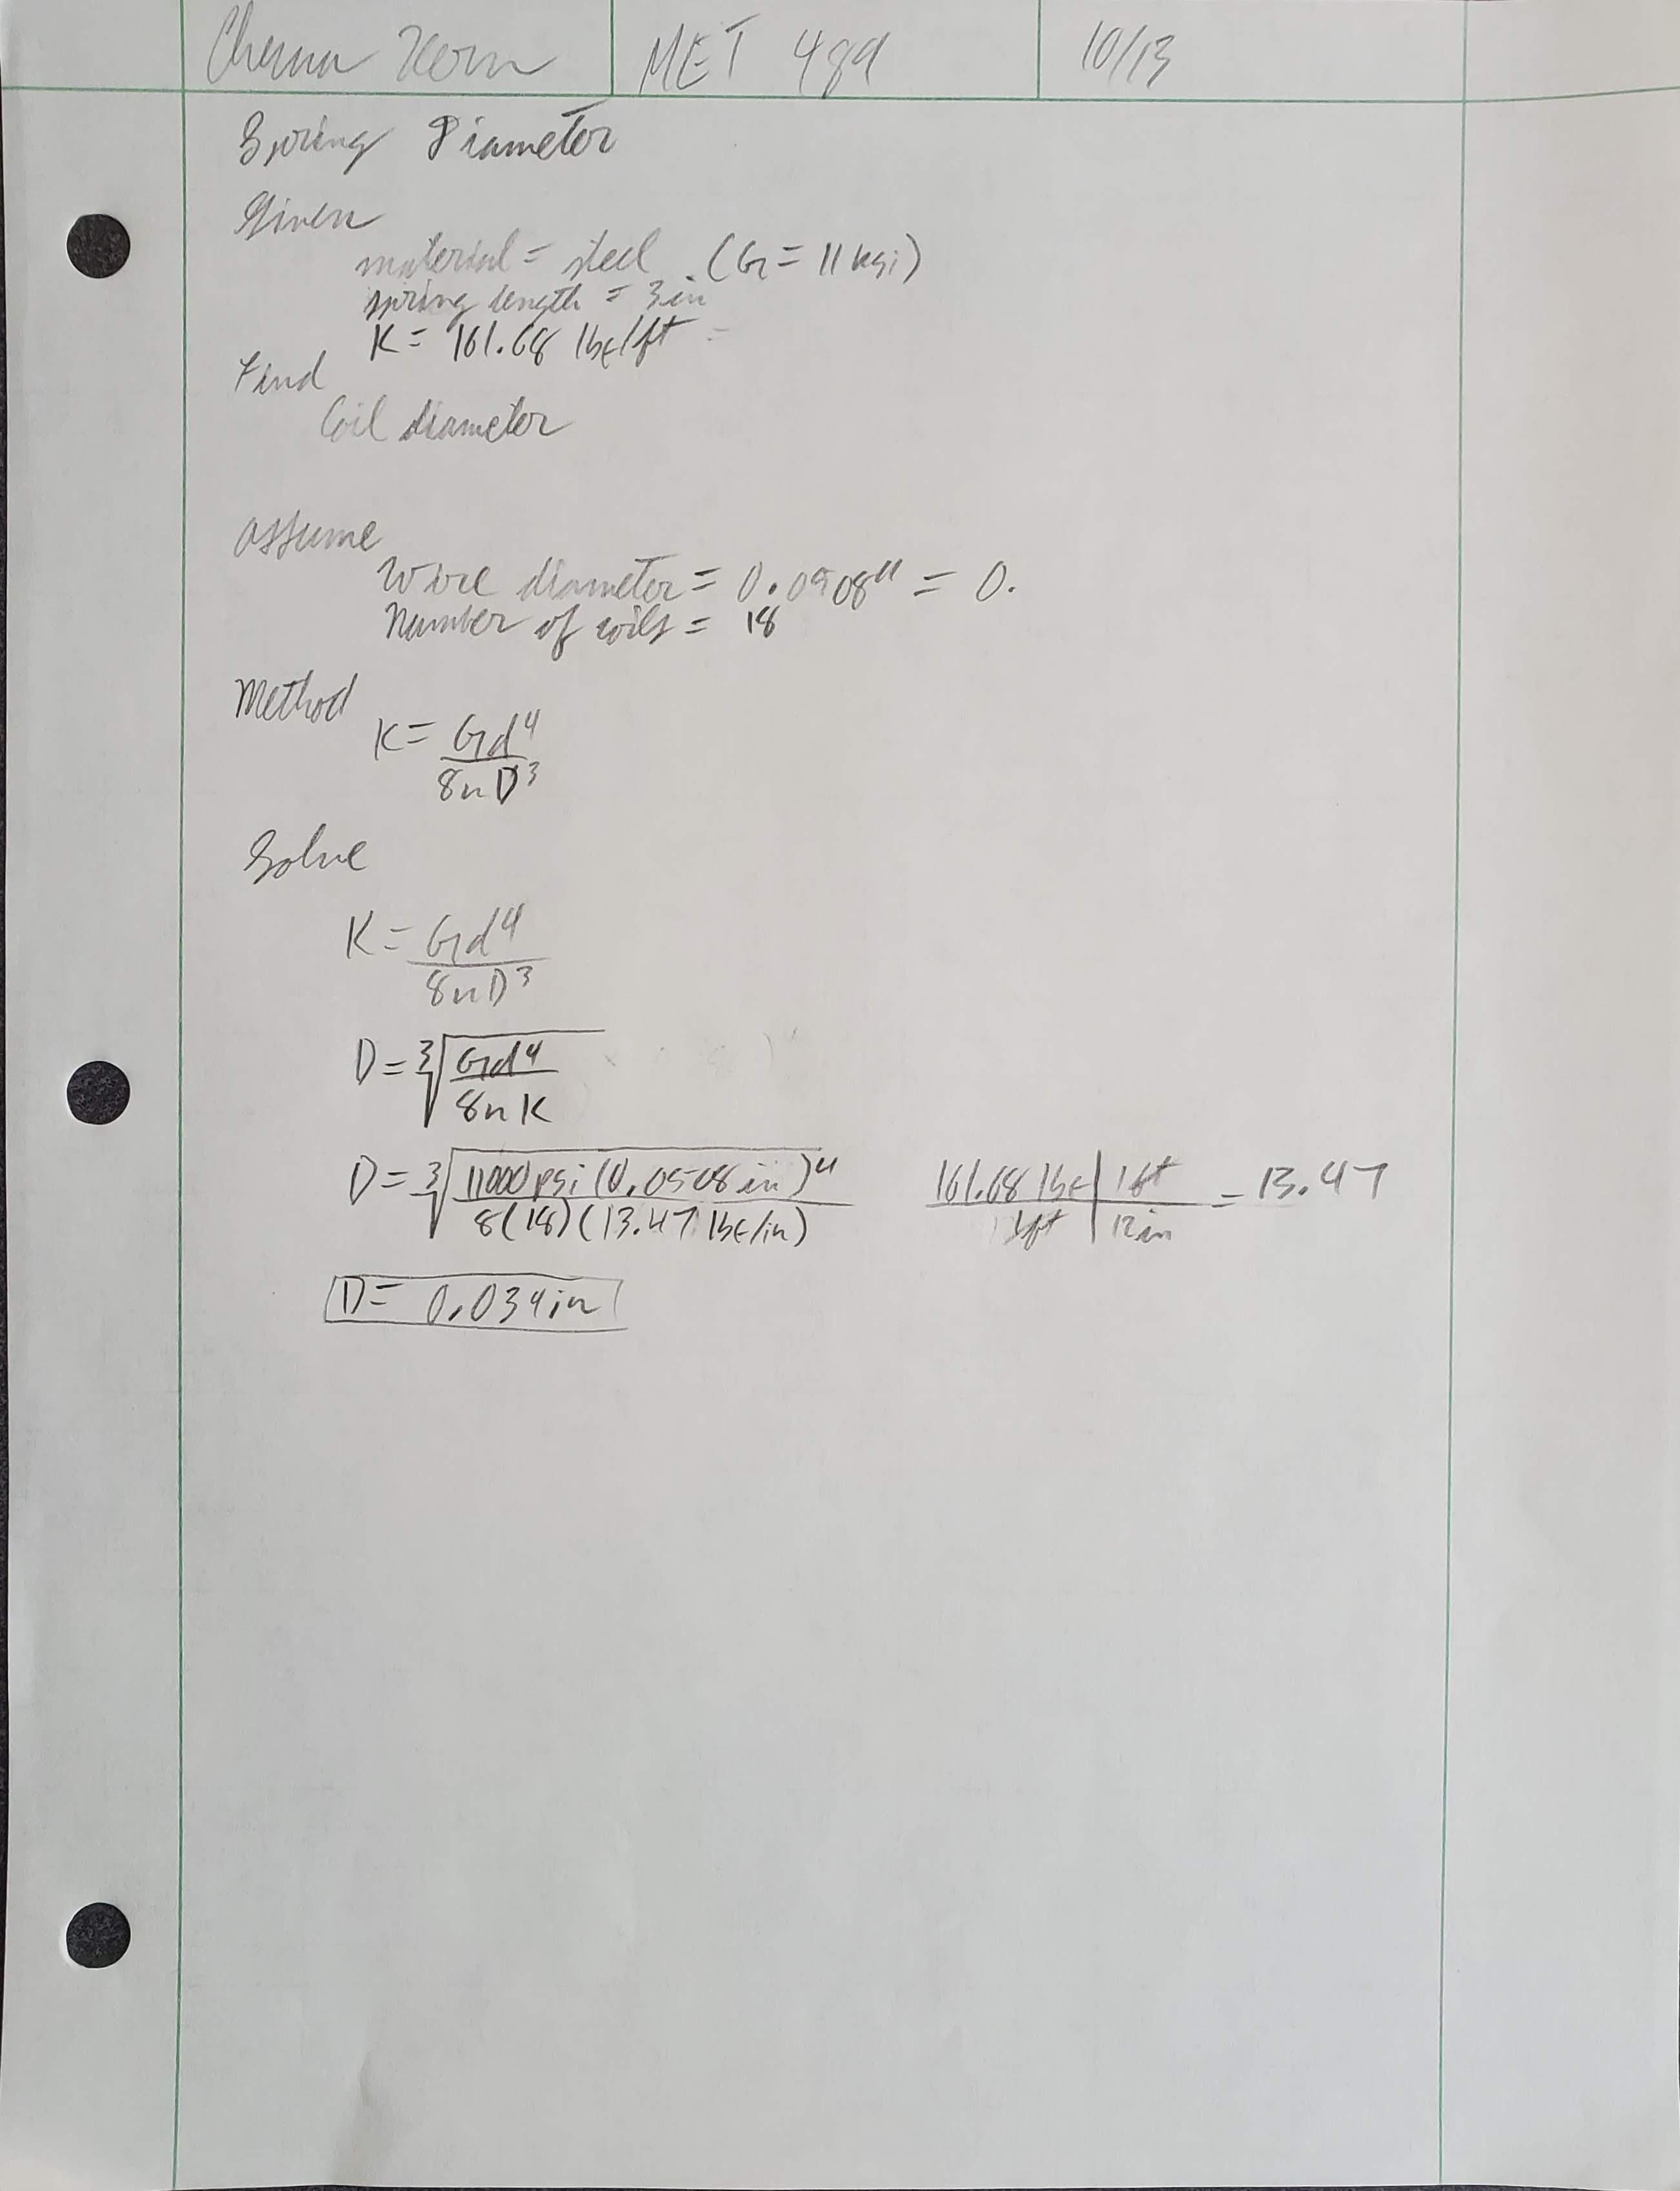 MET 489
10/13
Spring Diameter
Given
material = steel (G = 11 ksi)
spring length = 3in
K = 161.68 lbf/ft
Find
Coil diameter
Assume
Wire diameter = 0.0908" = 0.
Number of coils = 18
Method
K = Gd⁴ / 8nD³
Solve
K = Gd⁴ / 8nD³
D = ∛(Gd⁴ / 8nK)
D = ∛(11000psi (0.0508in)⁴ / 8(18)(13.47 lbf/in)) 161.68 lbf / 1ft | 1ft / 12in = 13.47
D = 0.034in